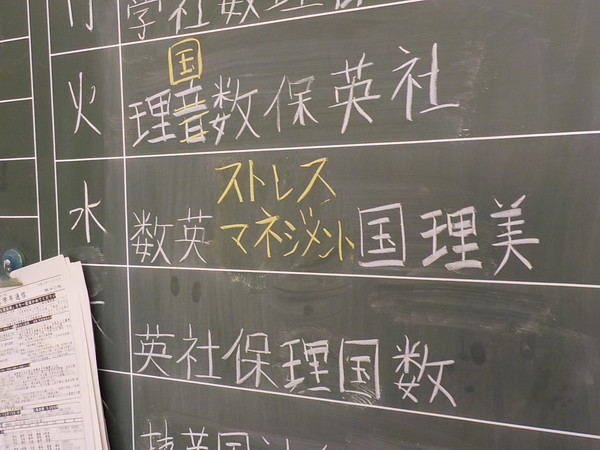 学社数理
国
火 理音数保英社
ストレス
水 数英マネジメント国理美
英社保理国数
英国社